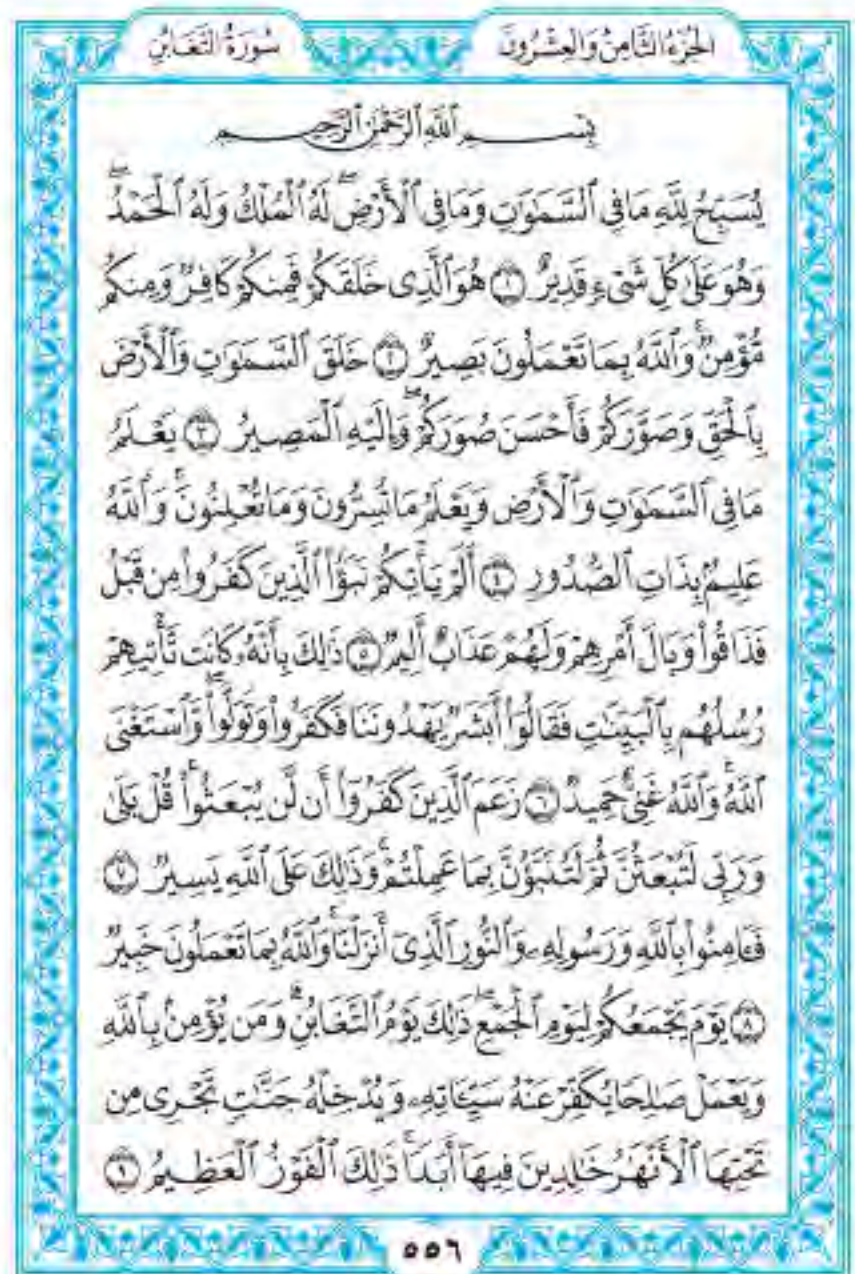 الجزء الثامن والعشرون
سورة التغابن
بِسْمِ ٱللَّهِ ٱلرَّحْمَٰنِ ٱلرَّحِيمِ
يُسَبِّحُ لِلَّهِ مَا فِي ٱلسَّمَٰوَٰتِ وَمَا فِي ٱلْأَرْضِۖ لَهُ ٱلْمُلْكُ وَلَهُ ٱلْحَمْدُۖ
وَهُوَ عَلَىٰ كُلِّ شَىْءٍ قَدِيرٌ ١ هُوَ ٱلَّذِى خَلَقَكُمْ فَمِنكُمْ كَافِرٌ وَمِنكُم
مُّؤْمِنٌۚ وَٱللَّهُ بِمَا تَعْمَلُونَ بَصِيرٌ ٢ خَلَقَ ٱلسَّمَٰوَٰتِ وَٱلْأَرْضَ
بِٱلْحَقِّ وَصَوَّرَكُمْ فَأَحْسَنَ صُوَرَكُمْۖ وَإِلَيْهِ ٱلْمَصِيرُ ٣ يَعْلَمُ
مَا فِي ٱلسَّمَٰوَٰتِ وَٱلْأَرْضِ وَيَعْلَمُ مَا تُسِرُّونَ وَمَا تُعْلِنُونَۚ وَٱللَّهُ
عَلِيمٌۢ بِذَاتِ ٱلصُّدُورِ ٤ أَلَمْ يَأْتِكُمْ نَبَؤُا۟ ٱلَّذِينَ كَفَرُوا۟ مِن قَبْلُ
فَذَاقُوا۟ وَبَالَ أَمْرِهِمْ وَلَهُمْ عَذَابٌ أَلِيمٌ ٥ ذَٰلِكَ بِأَنَّهُۥ كَانَت تَّأْتِيهِمْ
رُسُلُهُم بِٱلْبَيِّنَٰتِ فَقَالُوٓا۟ أَبَشَرٌ يَهْدُونَنَا فَكَفَرُوا۟ وَتَوَلَّوا۟ۖ وَّٱسْتَغْنَى
ٱللَّهُۚ وَٱللَّهُ غَنِىٌّ حَمِيدٌ ٦ زَعَمَ ٱلَّذِينَ كَفَرُوٓا۟ أَن لَّن يُبْعَثُوا۟ۚ قُلْ بَلَىٰ
وَرَبِّى لَتُبْعَثُنَّ ثُمَّ لَتُنَبَّؤُنَّ بِمَا عَمِلْتُمْۚ وَذَٰلِكَ عَلَى ٱللَّهِ يَسِيرٌ ٧
فَـَٔامِنُوا۟ بِٱللَّهِ وَرَسُولِهِۦ وَٱلنُّورِ ٱلَّذِىٓ أَنزَلْنَاۚ وَٱللَّهُ بِمَا تَعْمَلُونَ خَبِيرٌ
٨ يَوْمَ يَجْمَعُكُمْ لِيَوْمِ ٱلْجَمْعِۖ ذَٰلِكَ يَوْمُ ٱلتَّغَابُنِۗ وَمَن يُؤْمِنۢ بِٱللَّهِ
وَيَعْمَلْ صَٰلِحًا يُكَفِّرْ عَنْهُ سَيِّـَٔاتِهِۦ وَيُدْخِلْهُ جَنَّٰتٍ تَجْرِى مِن
تَحْتِهَا ٱلْأَنْهَٰرُ خَٰلِدِينَ فِيهَآ أَبَدًاۚ ذَٰلِكَ ٱلْفَوْزُ ٱلْعَظِيمُ ٩
٥٥٦